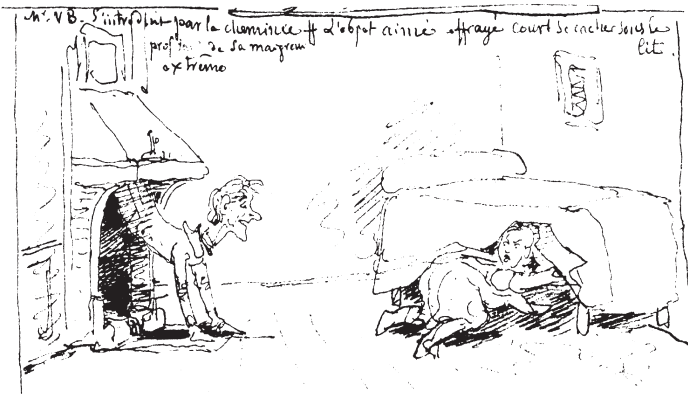 Mr. V B. S'introduit par la cheminée # L'objet aimé effrayé court se cacher sous le
profitant de sa maigreur lit.
extrême